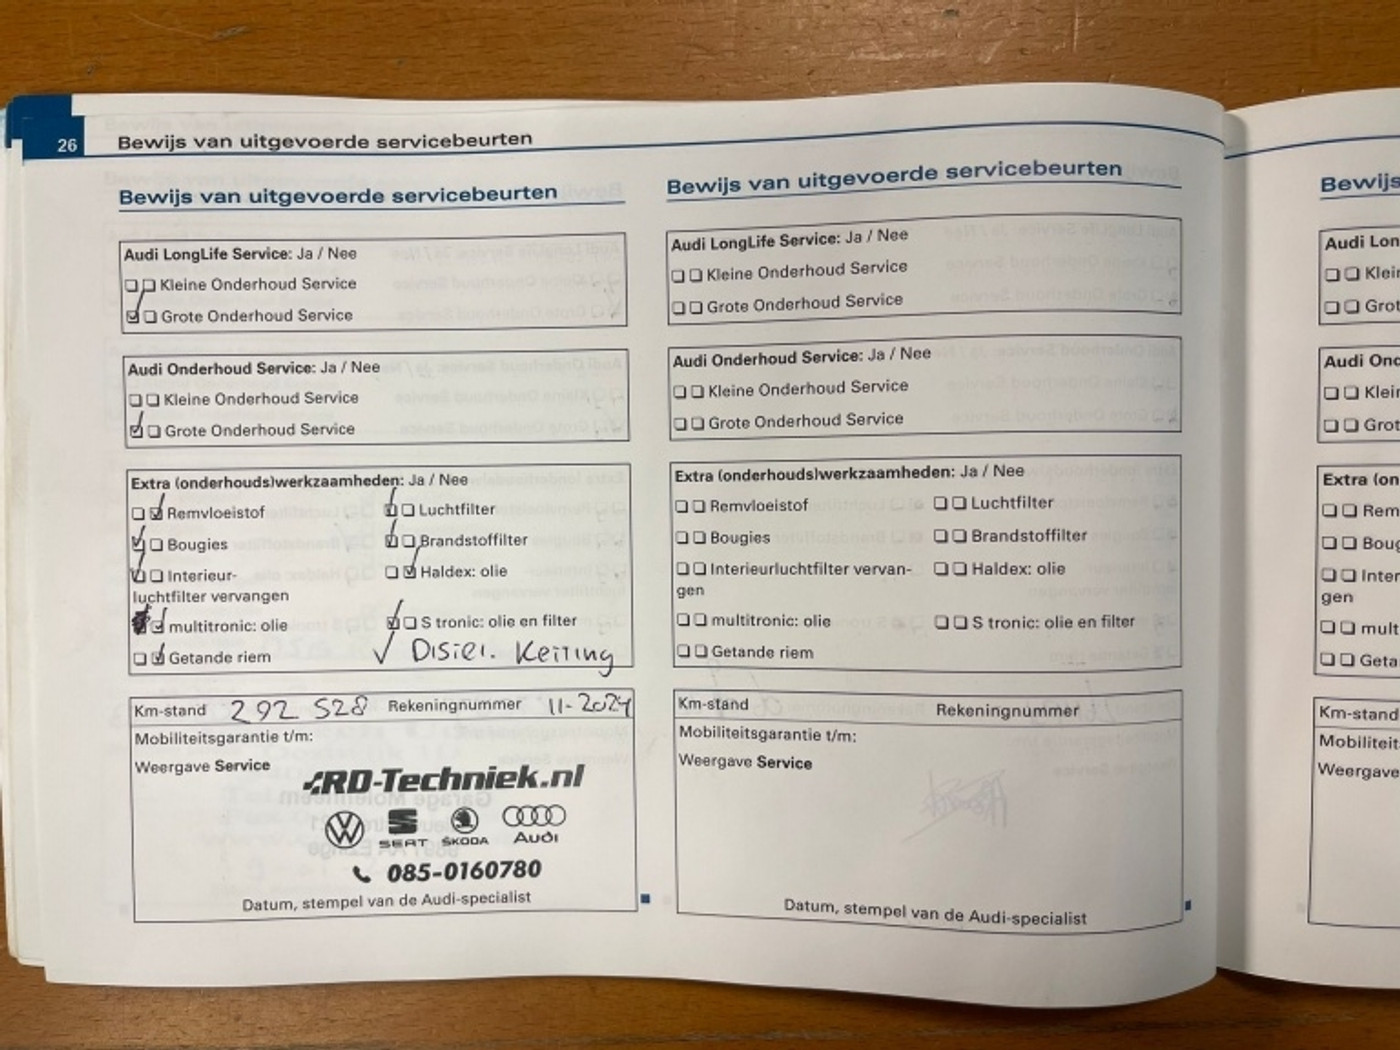 26 Bewijs van uitgevoerde servicebeurten
Bewijs van uitgevoerde servicebeurten
Audi LongLife Service: Ja / Nee
Kleine Onderhoud Service
Grote Onderhoud Service
Audi Onderhoud Service: Ja / Nee
Kleine Onderhoud Service
Grote Onderhoud Service
Extra (onderhouds)werkzaamheden: Ja / Nee
Remvloeistof Luchtfilter
Bougies Brandstoffilter
Interieur- Haldex: olie
luchtfilter vervangen
multitronic: olie S tronic: olie en filter
Getande riem Distri. Ketting
Km-stand 292 528 Rekeningnummer 11-2024
Mobiliteitsgarantie t/m:
Weergave Service
RD-Techniek.nl
SEAT ŠKODA Audi
085-0160780
Datum, stempel van de Audi-specialist
Bewijs van uitgevoerde servicebeurten
Audi LongLife Service: Ja / Nee
Kleine Onderhoud Service
Grote Onderhoud Service
Audi Onderhoud Service: Ja / Nee
Kleine Onderhoud Service
Grote Onderhoud Service
Extra (onderhouds)werkzaamheden: Ja / Nee
Remvloeistof Luchtfilter
Bougies Brandstoffilter
Interieurluchtfilter vervan- Haldex: olie
gen
multitronic: olie S tronic: olie en filter
Getande riem
Km-stand Rekeningnummer
Mobiliteitsgarantie t/m:
Weergave Service
Datum, stempel van de Audi-specialist
Bewijs
Audi Lon
Klei
Grot
Audi Ond
Klei
Grot
Extra (on
Rem
Boug
Inter
gen
mult
Geta
Km-stand
Mobiliteit
Weergave